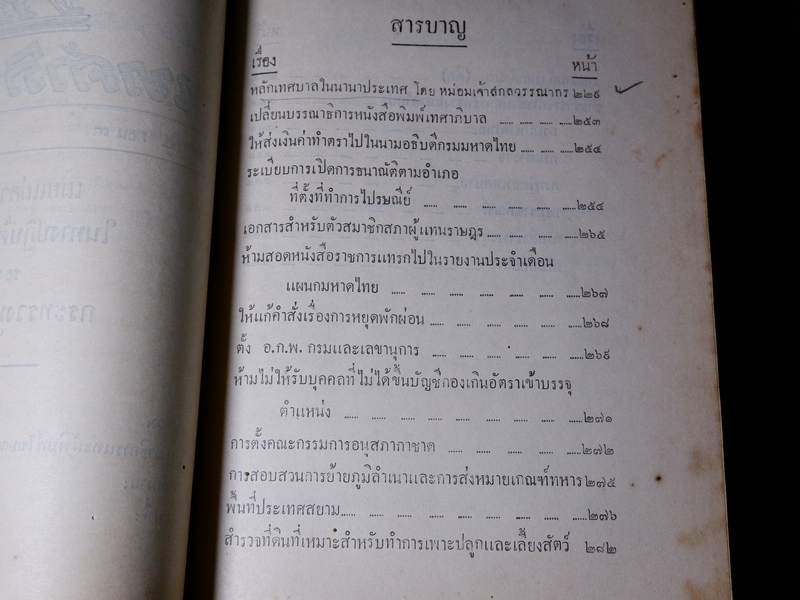 สารบาญ
เรื่อง หน้า
หลักเทศบาลในนานาประเทศ โดย หม่อมเจ้าสกลวรรณากร ๒๒๙
เปลี่ยนบรรณาธิการหนังสือพิมพ์เทศาภิบาล ...... ...... ...... ......๒๕๓
ให้ส่งเงินค่าทำตราไปในนามอธิบดีกรมมหาดไทย ...... ...... ......๒๕๔
ระเบียบการเปิดการธนาณัติตามอำเภอ
ที่ตั้งที่ทำการไปรษณีย์ ...... ...... ...... ...... ...... ......๒๕๔
เอกสารสำหรับตัวสมาชิกสภาผู้แทนราษฎร ...... ...... ...... ......๒๖๕
ห้ามสอดหนังสือราชการแทรกไปในรายงานประจำเดือน
แผนกมหาดไทย ...... ...... ...... ...... ...... ...... ......๒๖๗
ให้แก้คำสั่งเรื่องการหยุดพักผ่อน ...... ...... ...... ...... ...... ......๒๖๘
ตั้ง อ.ก.พ. กรมและเลขานุการ ...... ...... ...... ...... ...... ......๒๖๙
ห้ามไม่ให้รับบุคคลที่ไม่ได้ขึ้นบัญชีกองเกินอัตราเข้าบรรจุ
ตำแหน่ง ...... ...... ...... ...... ...... ...... ...... ......๒๗๑
การตั้งคณะกรรมการอนุสภากาชาด ...... ...... ...... ...... ......๒๗๒
การสอบสวนการย้ายภูมิลำเนาและการส่งหมายเกณฑ์ทหาร ๒๗๕
พื้นที่ประเทศสยาม...... ...... ...... ...... ...... ...... ...... ......๒๗๖
สำรวจที่ดินที่เหมาะสำหรับทำการเพาะปลูกและเลี้ยงสัตว์ ๒๘๒